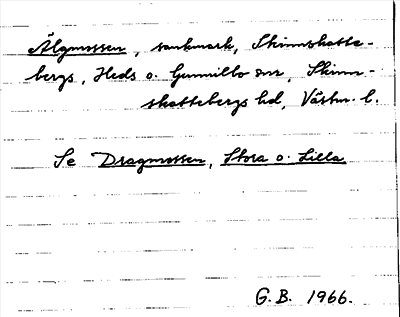 Älgmossen, sankmark, Skinnskatte-
bergs, Heds o. Gunnilbo snr, Skinn-
skattebergs hd, Västm. l.
Se Dragmossen, Stora o. Lilla
G.B. 1966.